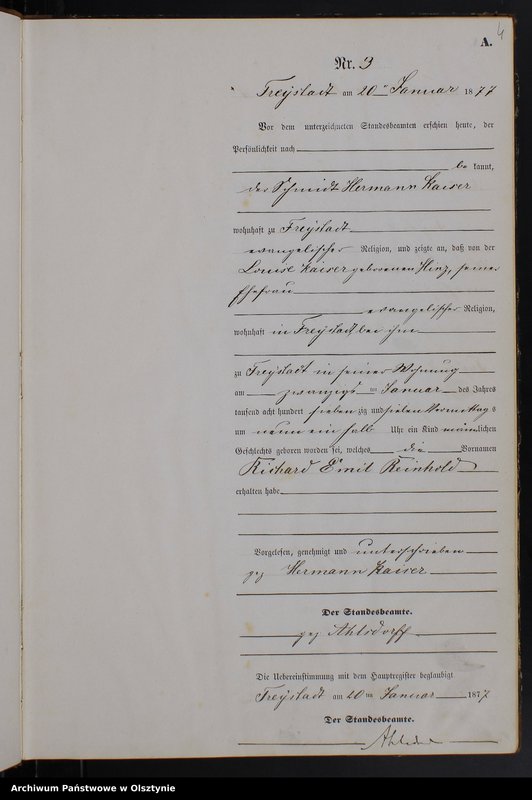 4
A.
Nr. 3
Freystadt am 20 ten Januar 1877
Vor dem unterzeichneten Standesbeamten erschien heute, der
Persönlichkeit nach
be kannt,
der Schmidt Hermann Kaiser
wohnhaft zu Freystadt
evangelischer Religion, und zeigte an, daß von der
Louise Kaiser geborenen Hinz, seiner
Ehefrau
evangelischer Religion,
wohnhaft in Freystadt bei ihm
zu Freystadt in seiner Wohnung
am zwanzigs ten Januar des Jahres
tausend acht hundert sieben zig und sieben Vormittag s
um neun ein halb Uhr ein Kind männlichen
Geschlechts geboren worden sei, welches die Vornamen
Richard Emil Reinhold
erhalten habe
Vorgelesen, genehmigt und unterschrieben
gez Hermann Kaiser
Der Standesbeamte.
gez Ahlsdorff
Die Uebereinstimmung mit dem Hauptregister beglaubigt
Freystadt am 20 ten Januar 1877
Der Standesbeamte.
Archiwum Państwowe w Olsztynie